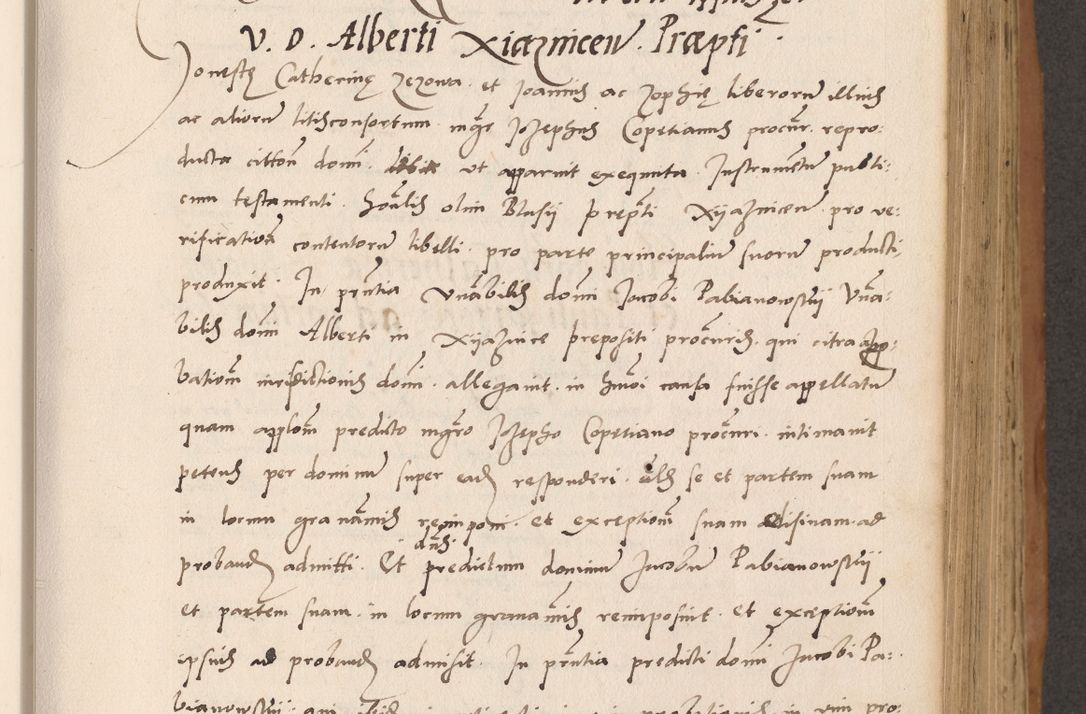 V. D. Alberti Xiaznicen̄. Præpti
Honestę Catherinę Zezowa. et Joannis ac Zophię liberorū illius
ac aliorū litisconsortum. mḡr Jozephus Copetianus procūr. repro:
ducta cittōn domī. ut apparuit exequuta. Instrumētū publi:
cum testamenti. Honlis olim Blasij prepti Xijaznicen̄. pro ve:
rificatiōn contentorū libelli. pro parte principaliū suorū producti
produxit. In pn̄tia Vnābilis domī Jacobi Pabianowskij Vnā:
bilis domī Alberti in Xijaznice prepositi procuris. qui citra appro:
batiōm iurisdictionis domī. allegauit. in hm̄oi causa fuisse appellatū
quam applōm predicto mḡro Jozepho Copetiano procuri. intimauit
petens per dominū super eadē responderi. als se et partem suam
in locum grauāmis reimponi. et exceptiōm suam ad
probandū admitti. Et dn̄s predictum dominū Jacobū Pabianowskij
et partem suam. in locum grauamīs reimposuit. et exceptiōm
ipsius ad probandū admisit. In pn̄tia predicti domī Jacobi Pa: